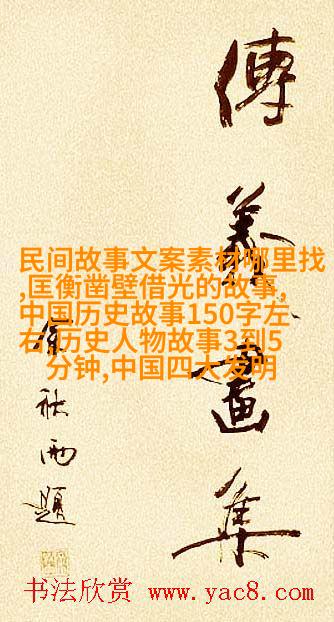 畫集
題
民间故事文案素材哪里找
,匡衡凿壁借光的故事,
中国历史故事150字左
右,历史人物故事3到5
分钟,中国四大发明
书法欣赏 www.yac8.com